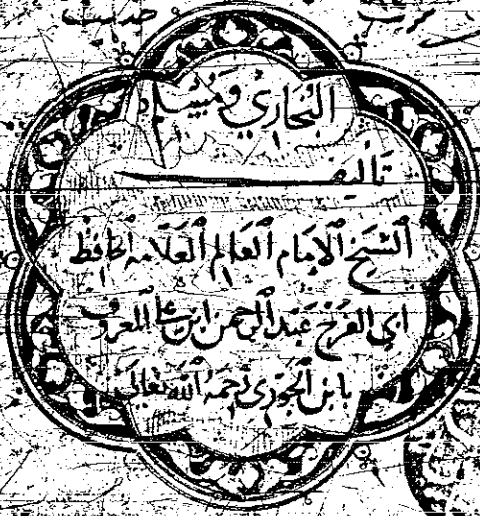 حديث
البخاري ومسلم
تأليف
الشيخ الإمام العالم العلامه الحافظ
ابي الفرج عبد الرحمن ابن علي المعروف
بابن الجوزي رحمه الله تعالى